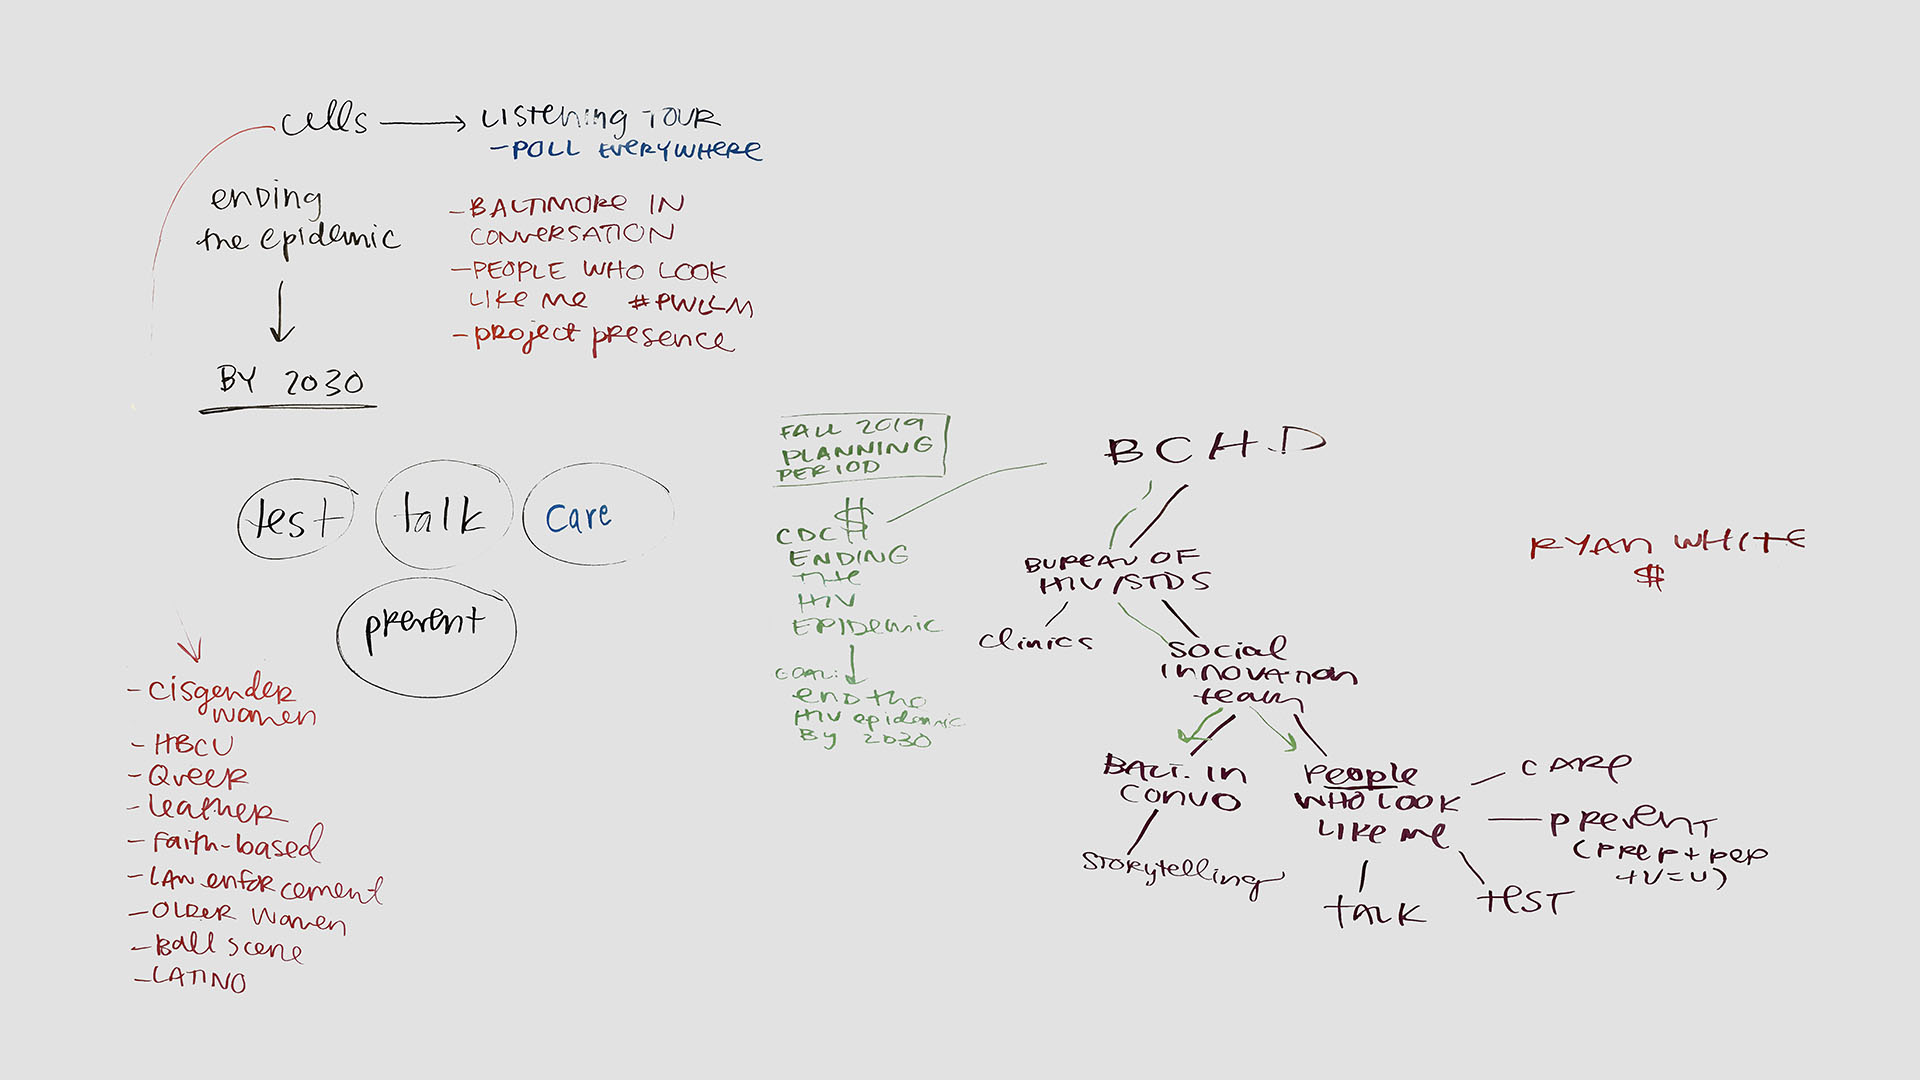 cells → LISTENING TOUR
- POLL EVERYWHERE
ENDING
the epidemic
BY 2030
- BALTIMORE IN
CONVERSATION
- PEOPLE WHO LOOK
LIKE ME #PWLLM
- PROJECT PRESENCE
test
talk
care
prevent
- cisgender
women
- HBCU
- Queer
- leather
- Faith-based
- LAW enforcement
- OLDER Women
- Ball scene
- LATINO
FALL 2019
PLANNING
PERIOD
$
CDC
ENDING
THE
HIV
EPIDEMIC
GOAL:
END the
HIV epidemic
By 2030
BCHD
BUREAU OF
HIV/STDS
clinics
SOCIAL
INNOVATION
team
BALT. IN
CONVO
storytelling
PEOPLE
WHO LOOK
LIKE ME
CARE
PREVENT
(PREP + PEP
+ U=U)
TEST
TALK
RYAN WHITE
$